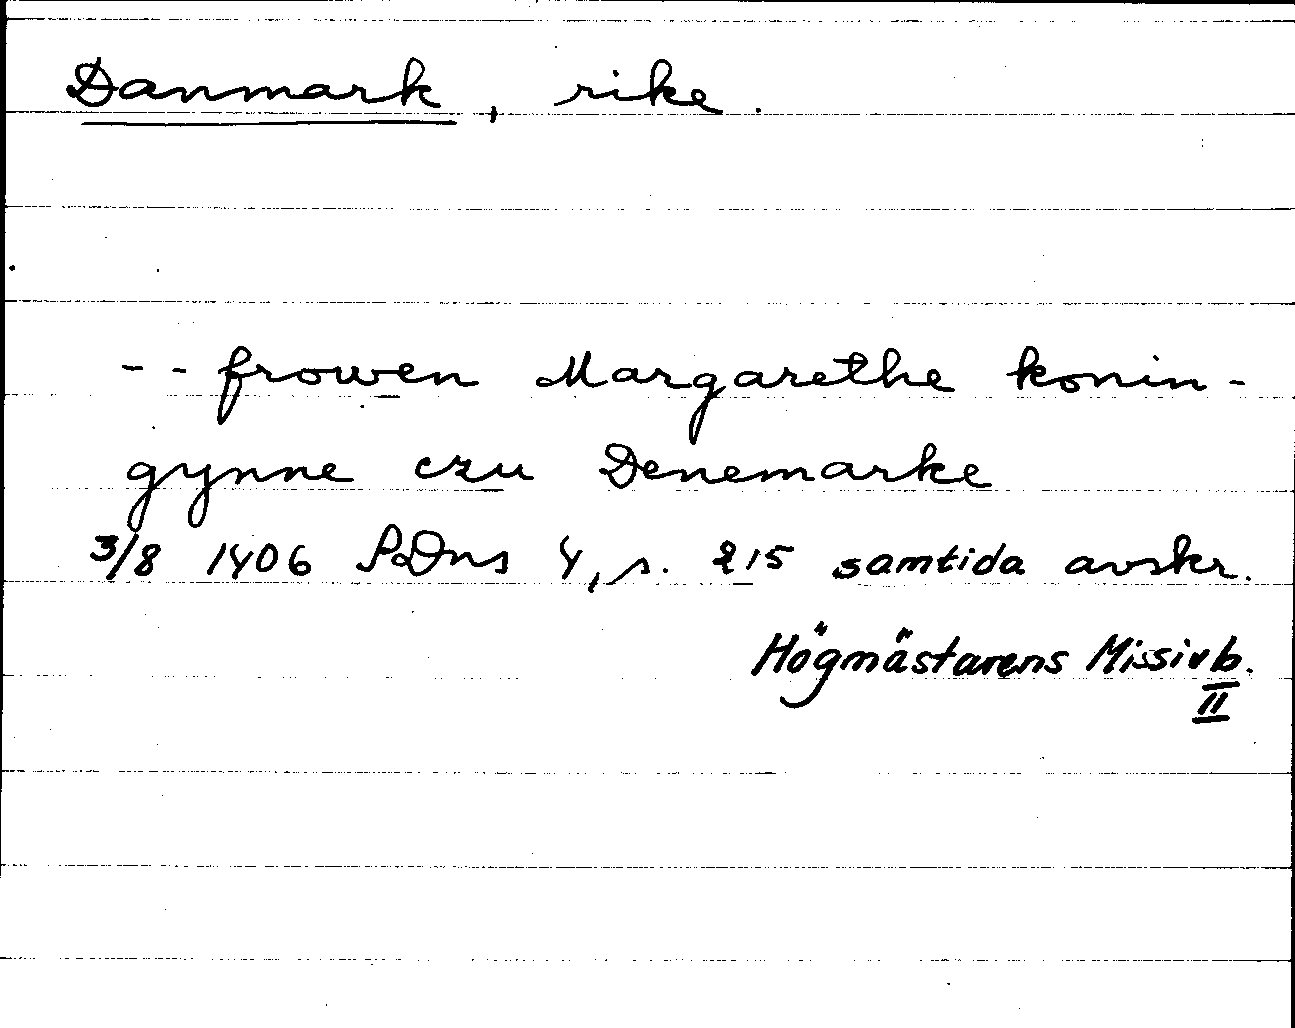 Danmark, rike.
-- frowen Margarethe konin-
gynne czu Denemarke
3/8 1406 SDns 4, s. 215 samtida avskr.
Högmästarens Missivb.
II